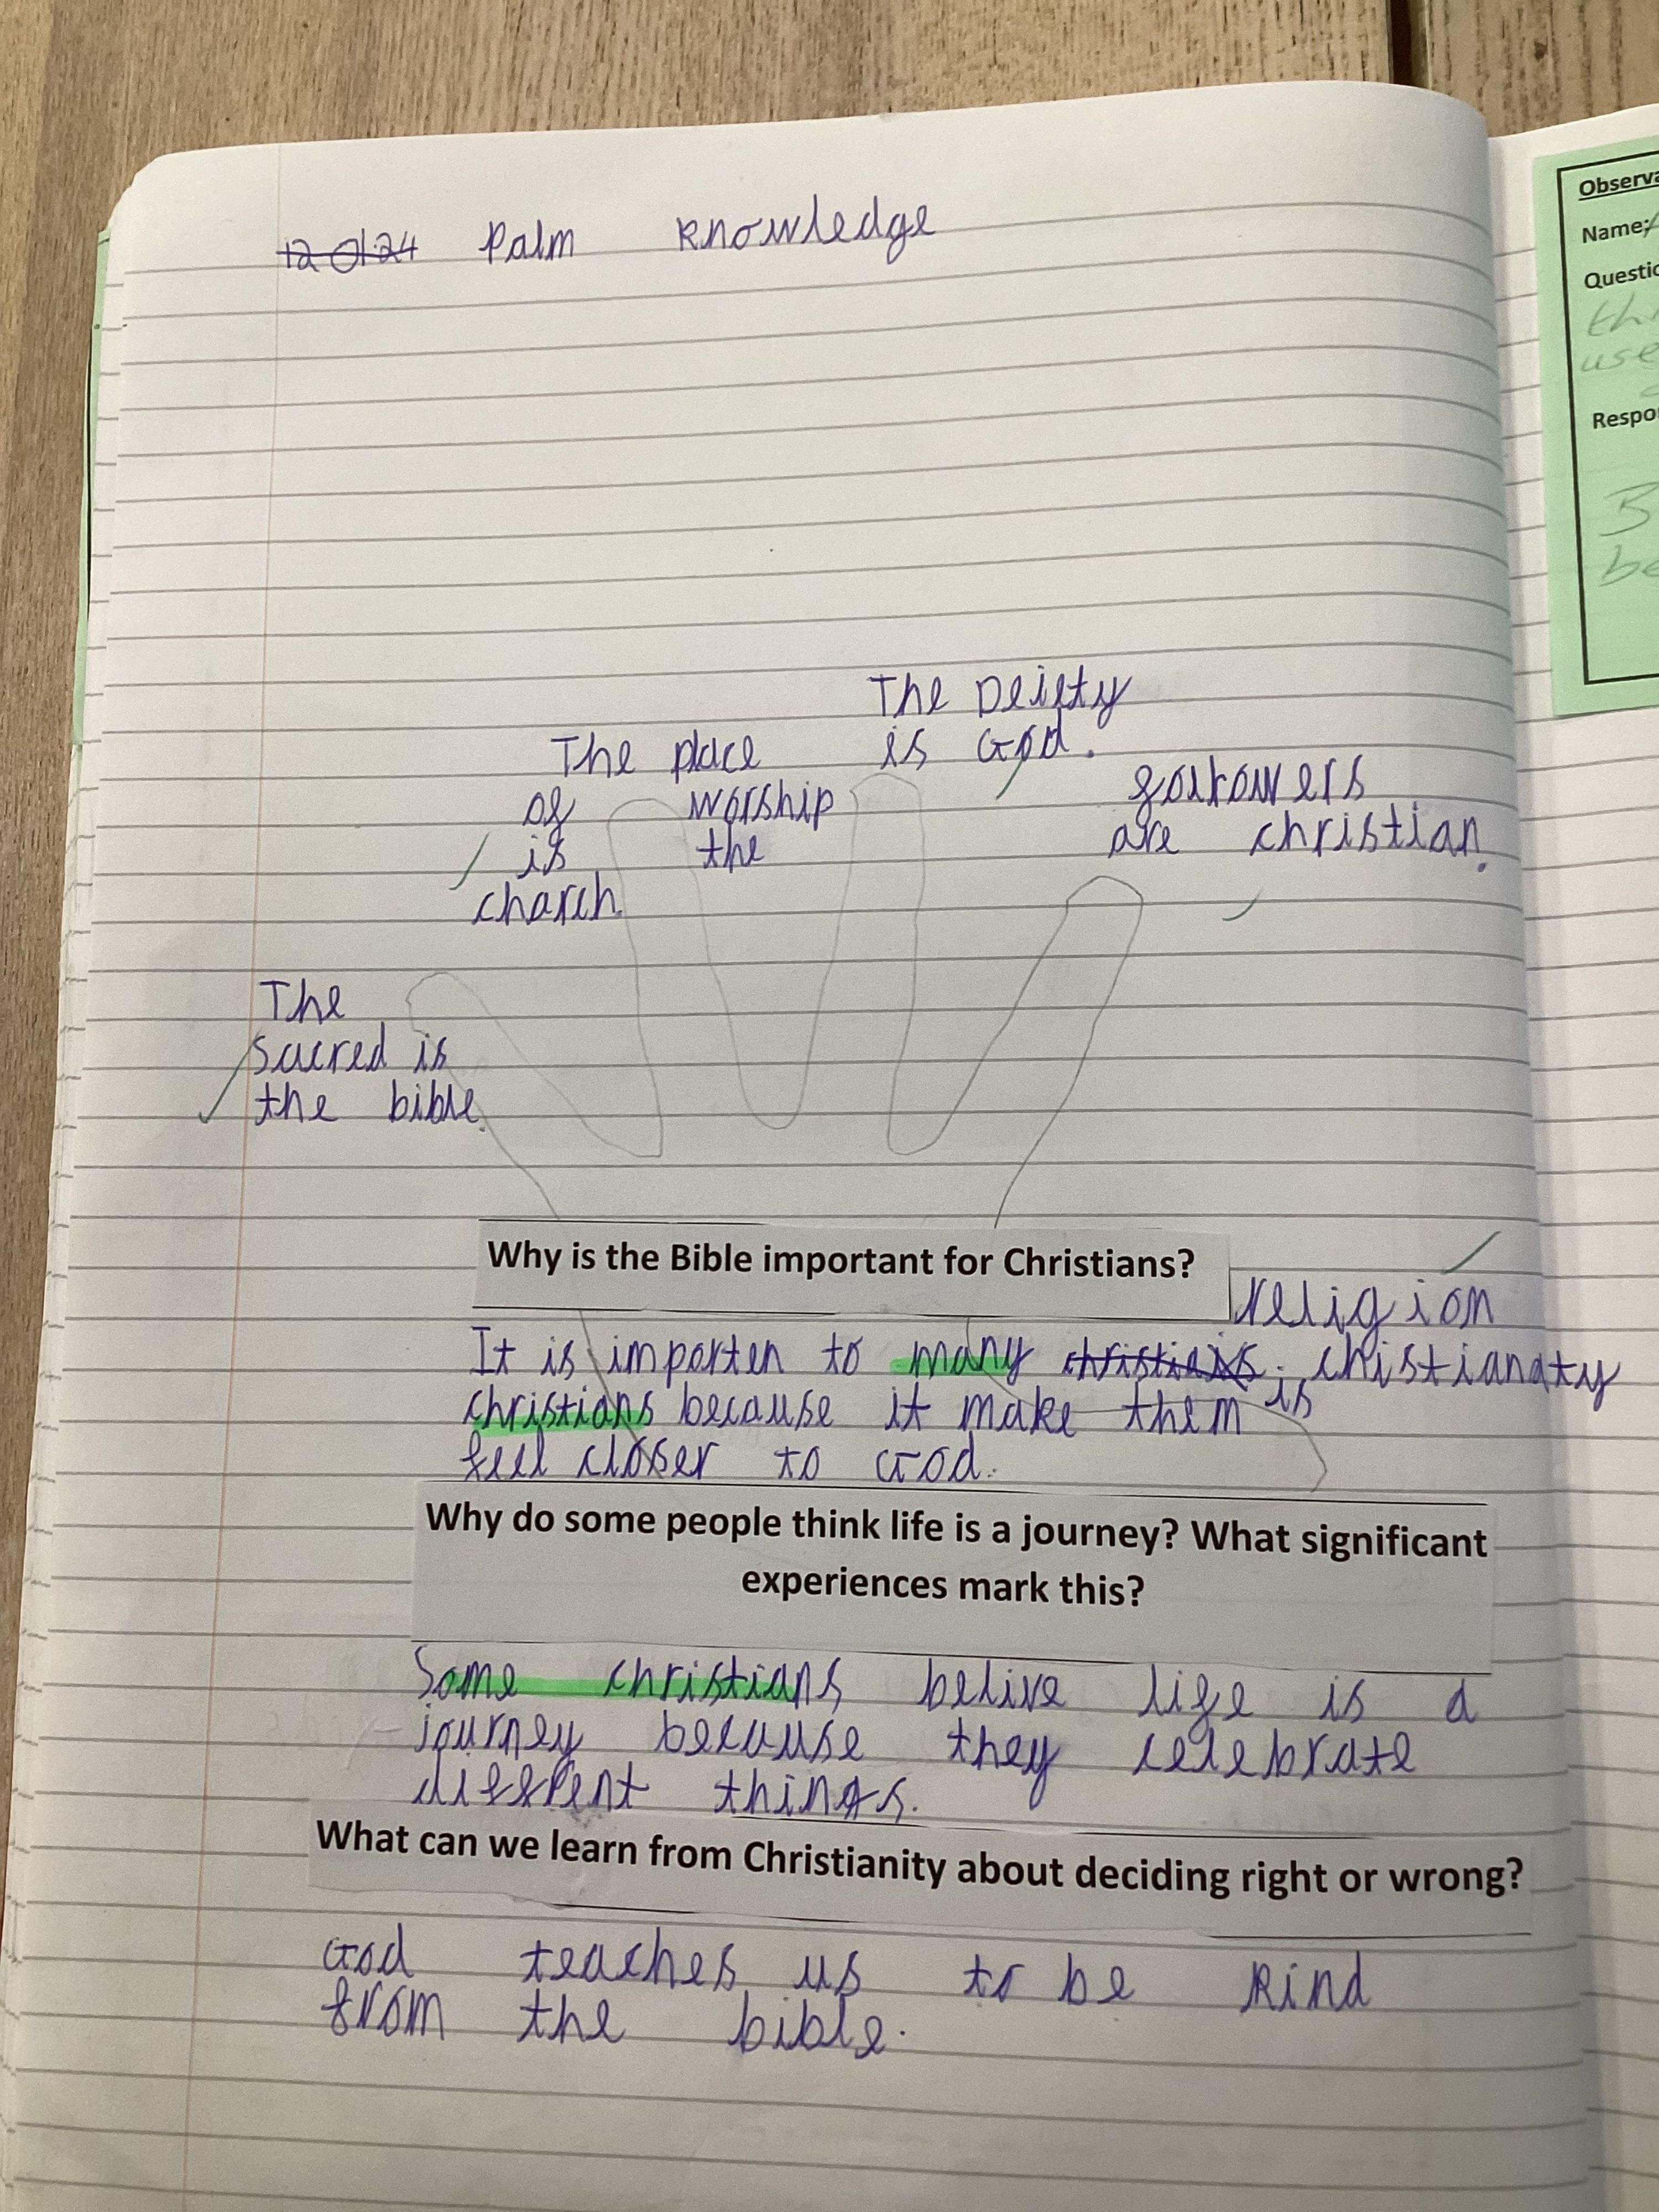 12.01.24 Palm Knowledge
The Deiety
is God.
The place
of worship
is the
charch
followers
are christian.
The
Sacred is
the bible.
Why is the Bible important for Christians?
religion
is christianaty
It is importen to many christians.
christians because it make them
feel closer to God.
Why do some people think life is a journey? What significant
experiences mark this?
Some christians belive life is a
journey because they celebrate
diffrent things.
What can we learn from Christianity about deciding right or wrong?
God teaches us to be kind
from the bible.
Observa
Name:
Questio
thi
use
Respo
B
be